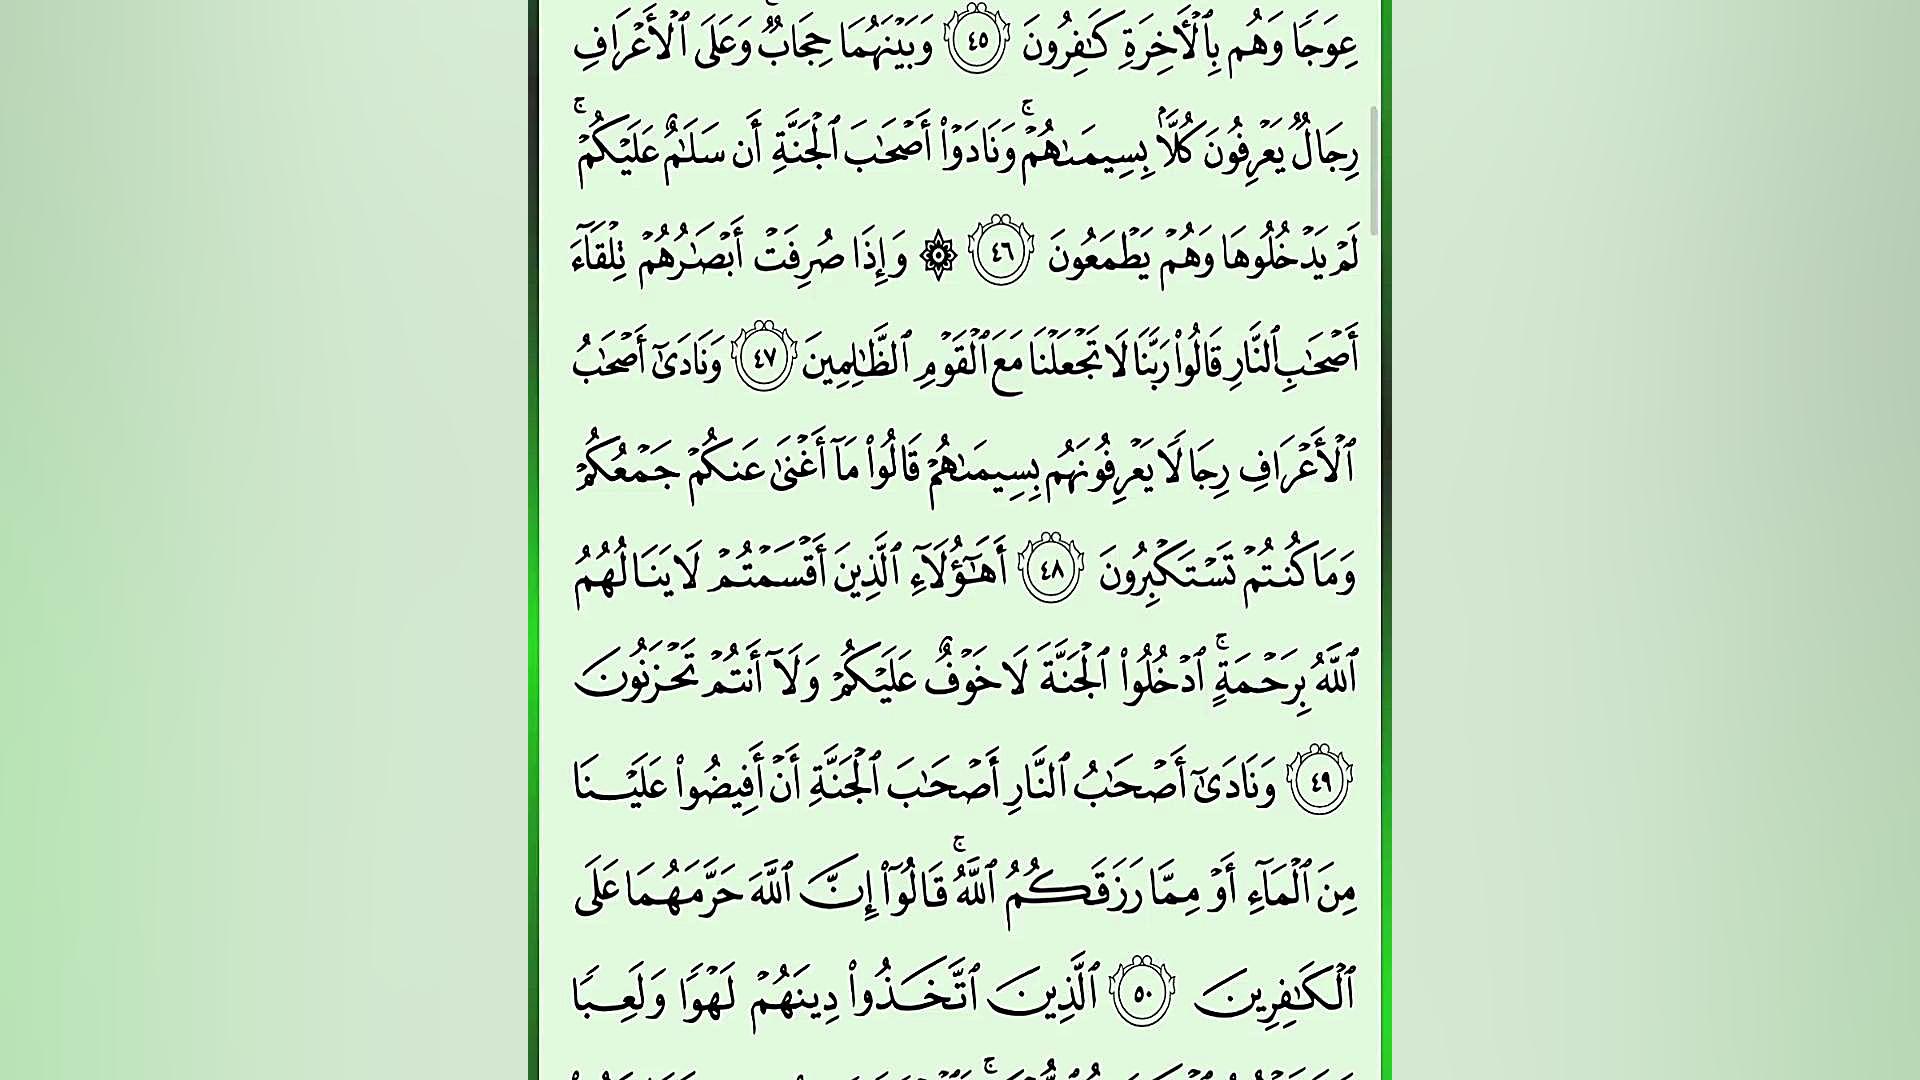 عِوَجًا وَهُم بِٱلْأَخِرَةِ كَـٰفِرُونَ ٤٥ وَبَيْنَهُمَا حِجَابٌ وَعَلَى ٱلْأَعْرَافِ
رِجَالٌ يَعْرِفُونَ كُلًّۢا بِسِيمَىٰهُمْ ۚ وَنَادَوْا۟ أَصْحَـٰبَ ٱلْجَنَّةِ أَن سَلَـٰمٌ عَلَيْكُمْ ۚ
لَمْ يَدْخُلُوهَا وَهُمْ يَطْمَعُونَ ٤٦ ۞ وَإِذَا صُرِفَتْ أَبْصَـٰرُهُمْ تِلْقَآءَ
أَصْحَـٰبِ ٱلنَّارِ قَالُوا۟ رَبَّنَا لَا تَجْعَلْنَا مَعَ ٱلْقَوْمِ ٱلظَّـٰلِمِينَ ٤٧ وَنَادَىٰٓ أَصْحَـٰبُ
ٱلْأَعْرَافِ رِجَالًا يَعْرِفُونَهُم بِسِيمَىٰهُمْ قَالُوا۟ مَآ أَغْنَىٰ عَنكُمْ جَمْعُكُمْ
وَمَا كُنتُمْ تَسْتَكْبِرُونَ ٤٨ أَهَـٰٓؤُلَآءِ ٱلَّذِينَ أَقْسَمْتُمْ لَا يَنَالُهُمُ
ٱللَّهُ بِرَحْمَةٍ ۚ ٱدْخُلُوا۟ ٱلْجَنَّةَ لَا خَوْفٌ عَلَيْكُمْ وَلَآ أَنتُمْ تَحْزَنُونَ
٤٩ وَنَادَىٰٓ أَصْحَـٰبُ ٱلنَّارِ أَصْحَـٰبَ ٱلْجَنَّةِ أَنْ أَفِيضُوا۟ عَلَيْنَا
مِنَ ٱلْمَآءِ أَوْ مِمَّا رَزَقَكُمُ ٱللَّهُ ۚ قَالُوٓا۟ إِنَّ ٱللَّهَ حَرَّمَهُمَا عَلَى
ٱلْكَـٰفِرِينَ ٥٠ ٱلَّذِينَ ٱتَّخَذُوا۟ دِينَهُمْ لَهْوًا وَلَعِبًا